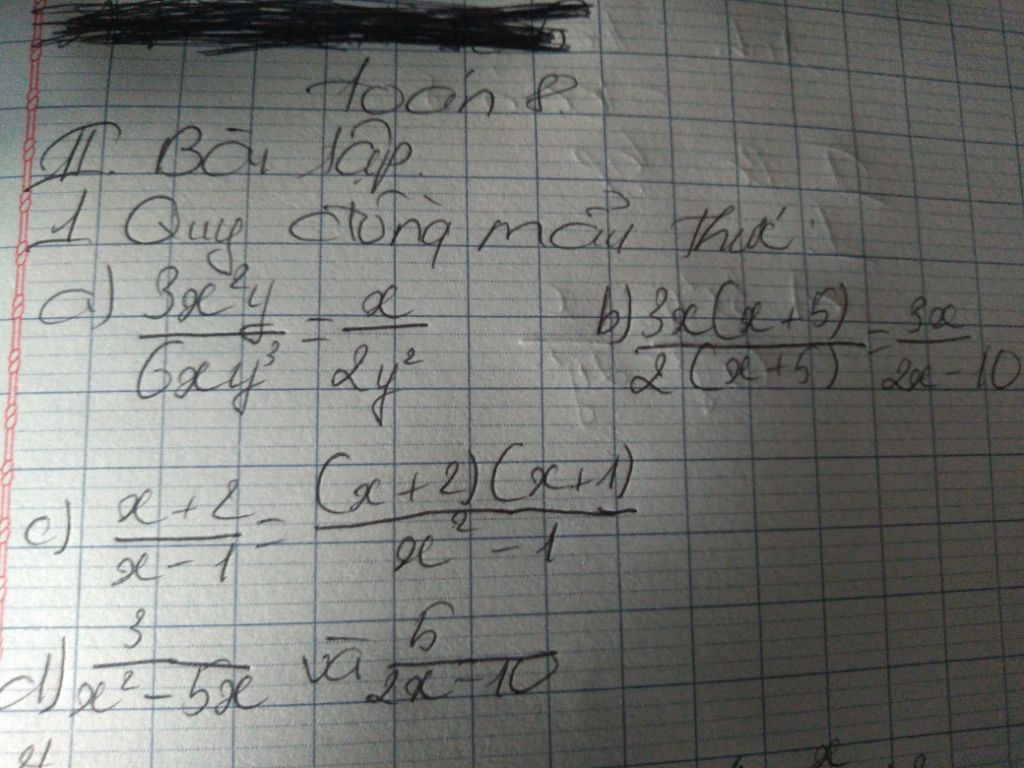 toán 8.
II. Bài tập.
1 Quy đồng mẫu thức:
a) 3x²y/6xy³ = x/2y² b) 3x(x+5)/2(x+5) = 3x/2x-10
c) x+2/x-1 = (x+2)(x+1)/x²-1
d) 3/x²-5x và 5/2x-10